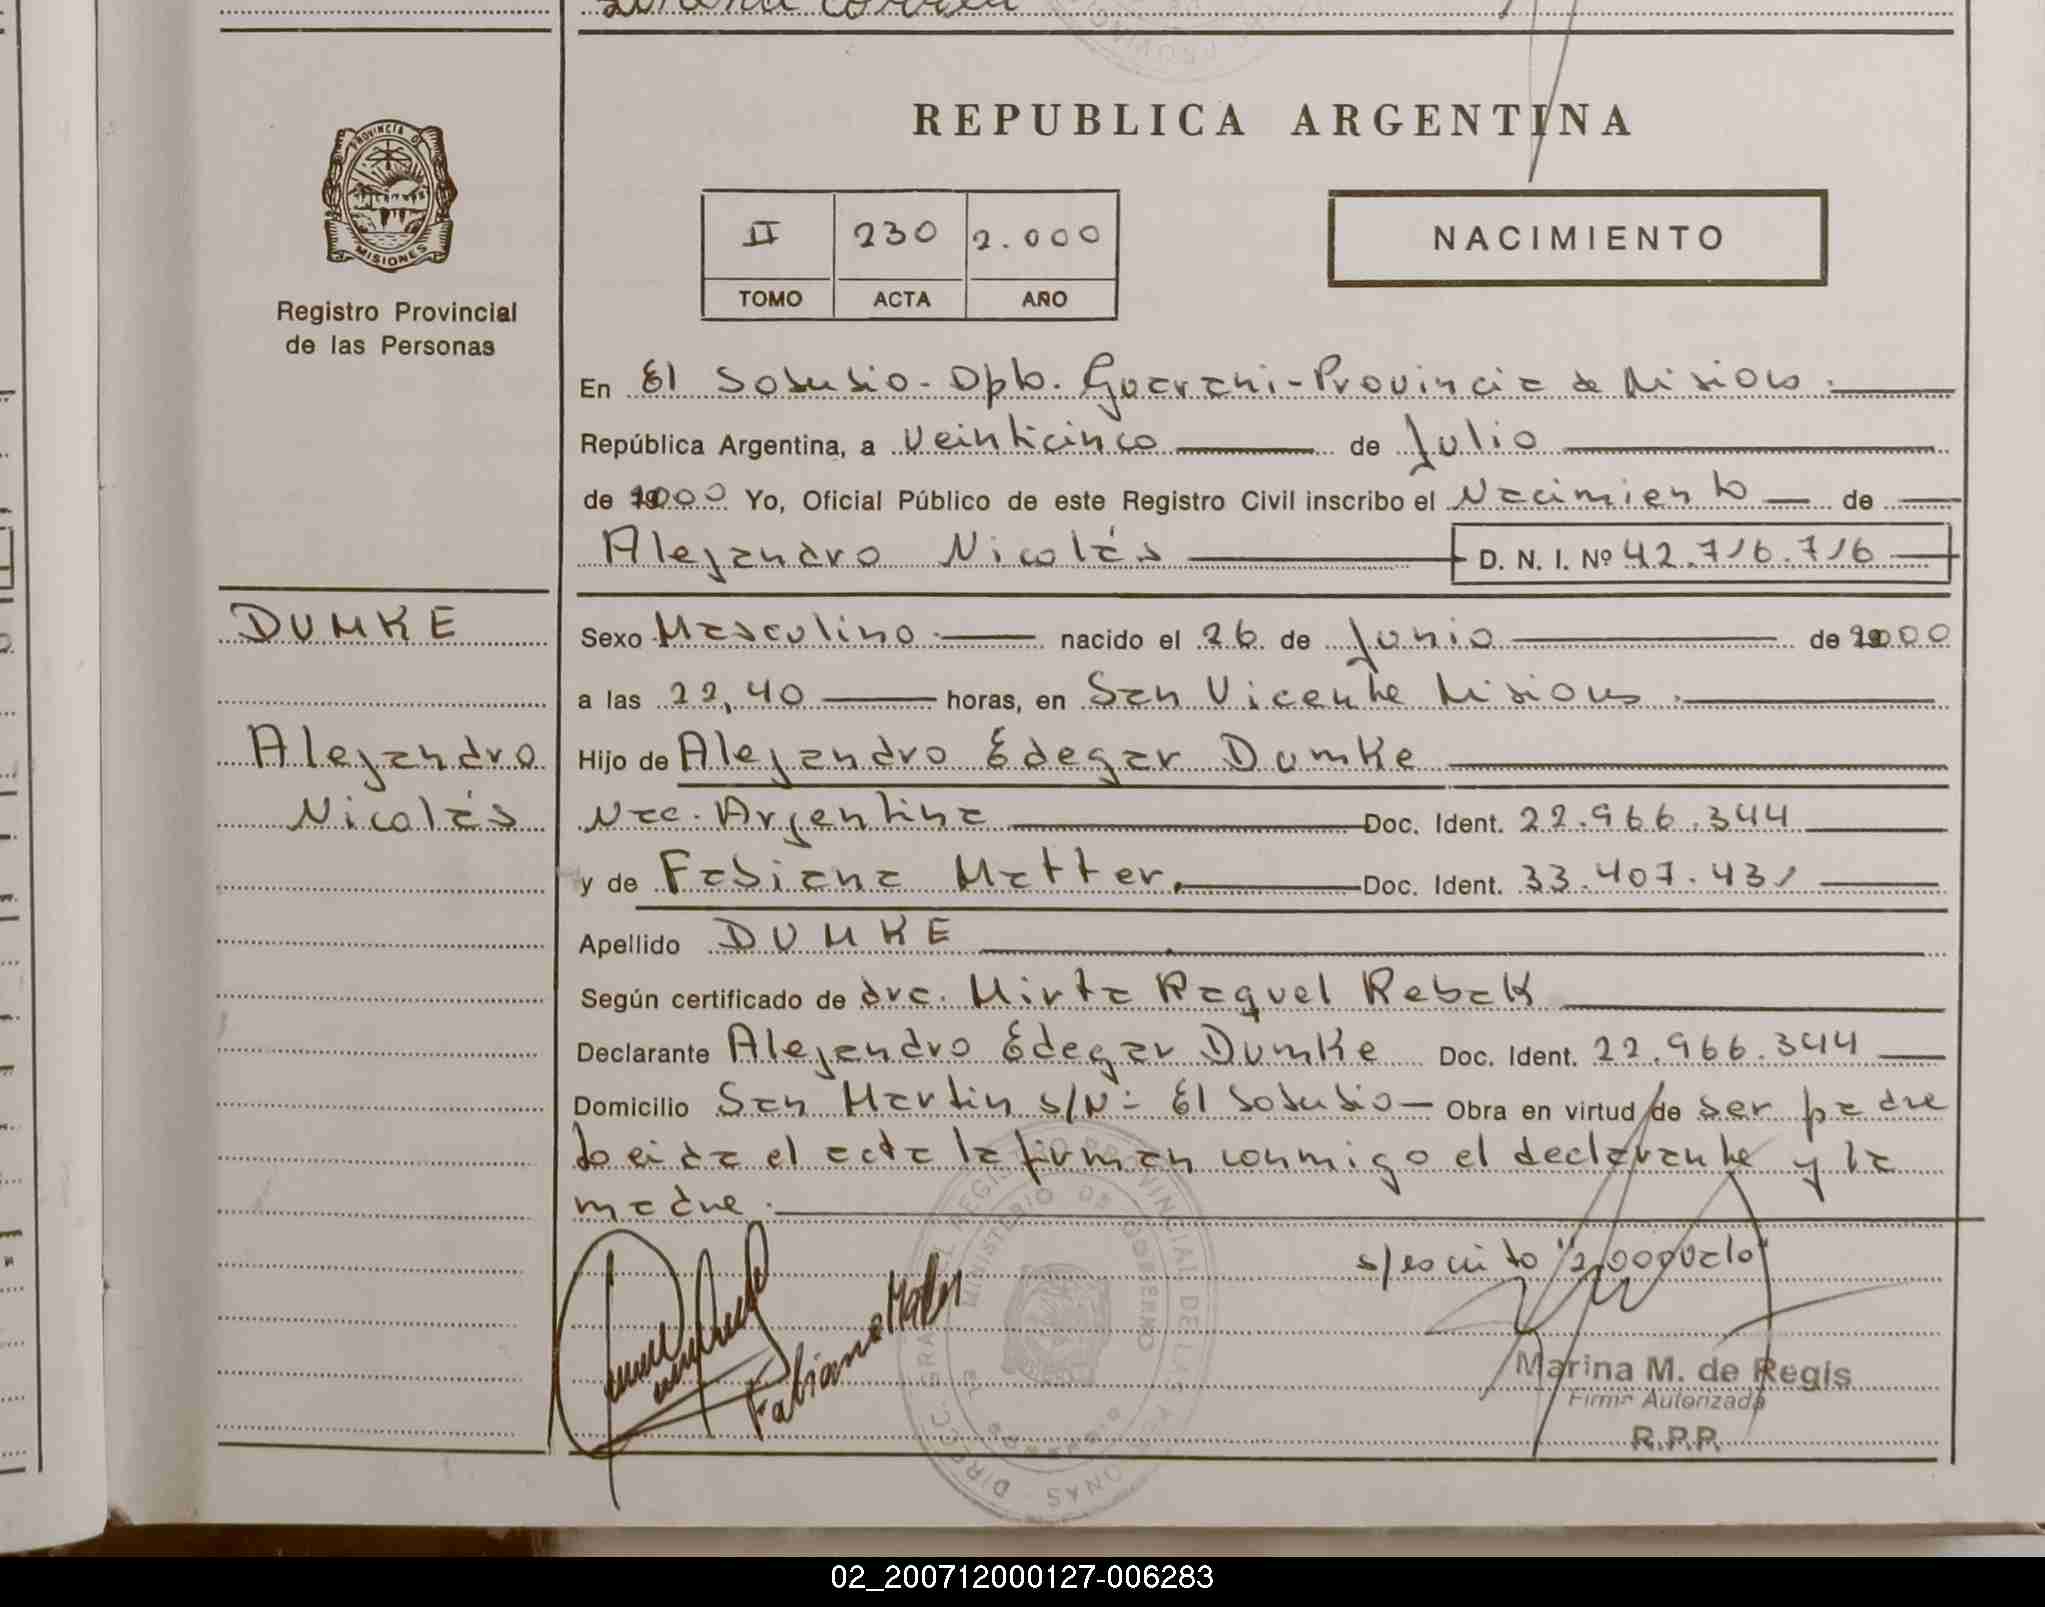 REPUBLICA ARGENTINA
PROVINCIA DE
MISIONES
Registro Provincial
de las Personas
II 230 2.000
TOMO ACTA AÑO
NACIMIENTO
En El Soberbio - Dpto. Guarani - Provincia de Misiones.
República Argentina, a Veinticinco de Julio
de 2000 Yo, Oficial Público de este Registro Civil inscribo el Nacimiento de
Alejandro Nicolás D. N. I. Nº 42.716.716
DUMKE
Alejandro
Nicolás
Sexo Masculino. nacido el 26 de Junio de 2000
a las 22,40 horas, en San Vicente Misiones.
Hijo de Alejandro Edegar Dumke
Nac. Argentina Doc. Ident. 22.966.344
y de Fabiana Matter. Doc. Ident. 33.407.431
Apellido DUMKE
Según certificado de dra. Mirta Raquel Rebak
Declarante Alejandro Edegar Dumke Doc. Ident. 22.966.344
Domicilio San Martin s/Nº El Soberbio - Obra en virtud de ser padre
Leida el acta la firman conmigo el declarante y la
madre.
s/escrito "2.000 Vale"
Fabiana Matter
Marina M. de Regis
Firma Autorizada
R.P.P.
02_200712000127-006283